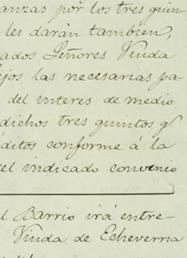 anzas por los tres quin
les darán tambien,
ados Señores Viuda
ejos las necesarias pa-
del interes de medio
dichos tres quintos q.
ditos conforme á la
el indicado convenio
l Barrio irá entre-
Viuda de Echeverria